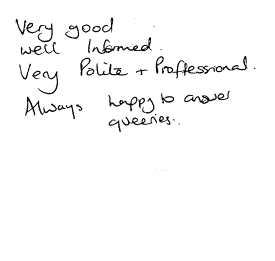 Very good
well Informed.
Very Polite + Proffessional.
Always happy to answer
queeries.